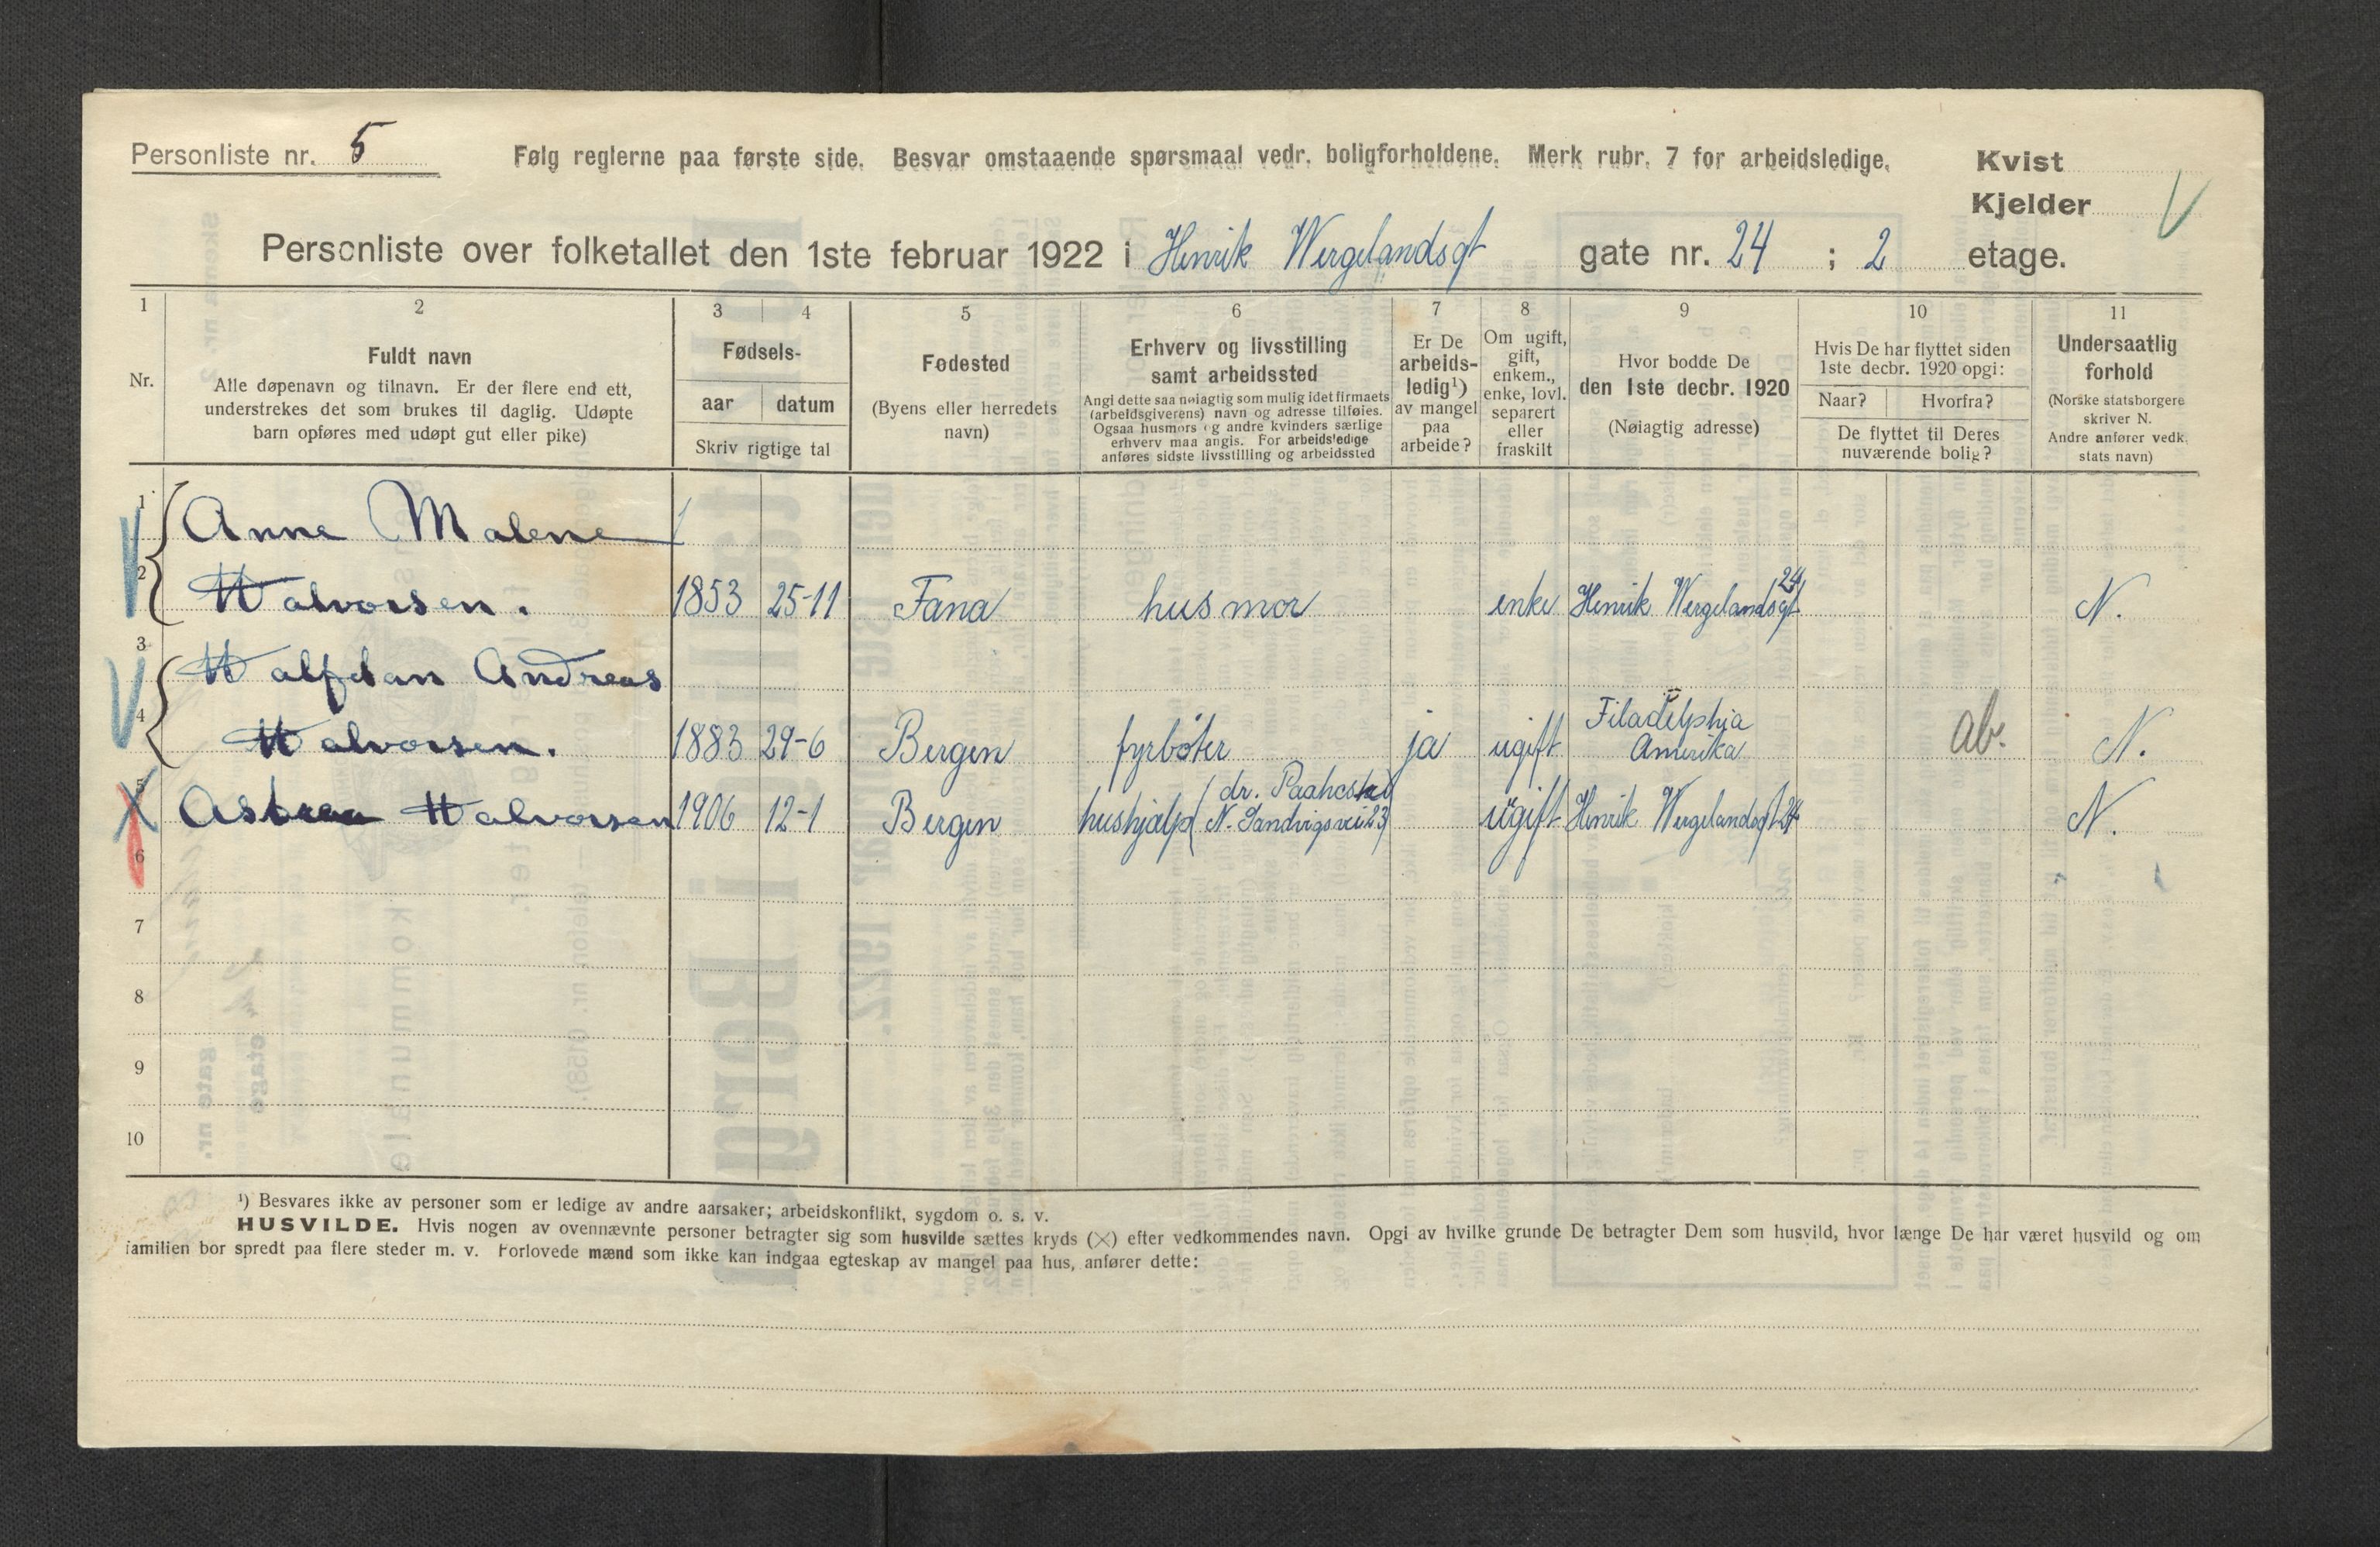 Personliste nr. 5
Følg reglerne paa første side. Besvar omstaaende spørsmaal vedr. boligforholdene. Merk rubr. 7 for arbeidsledige.
Kvist
Kjelder
Personliste over folketallet den 1ste februar 1922 i Henrik Wergelandsgt gate nr. 24 ; 2 etage.
1 2 3 4 5 6 7 8 9 10 11
Nr.
Fuldt navn
Alle døpenavn og tilnavn. Er der flere end ett,
understrekes det som brukes til daglig. Udøpte
barn opføres med udøpt gut eller pike)
Fødsels-
aar datum
Skriv rigtige tal
Fødested
(Byens eller herredets
navn)
Erhverv og livsstilling
samt arbeidssted
Angi dette saa nøiagtig som mulig idet firmaets
(arbeidsgiverens) navn og adresse tilføies.
Ogsaa husmors og andre kvinders særlige
erhverv maa angis. For arbeidsledige
anføres sidste livsstilling og arbeidssted
Er De
arbeids-
ledig¹)
av mangel
paa
arbeide?
Om ugift,
gift,
enkem.,
enke, lovl.
separert
eller
fraskilt
Hvor bodde De
den 1ste decbr. 1920
(Nøiagtig adresse)
Hvis De har flyttet siden
1ste decbr. 1920 opgi:
Naar? Hvorfra?
De flyttet til Deres
nuværende bolig?
Undersaatlig
forhold
(Norske statsborgere
skriver N.
Andre anfører vedk.
stats navn)
1 Anne Malene
2 Halvorsen. 1853 25-11 Fana husmor enke Henrik Wergelandsgt 24 N.
3 Halfdan Andreas
4 Halvorsen. 1883 29-6 Bergen fyrbøter ja ugift Filadelphia Amerika ab. N.
5 Halvorsen 1906 12-1 Bergen hushjælp dr. N. Sandvigsvei 23 ugift Henrik Wergelandsgt 24 N.
6
7
8
9
10
¹) Besvares ikke av personer som er ledige av andre aarsaker; arbeidskonflikt, sygdom o. s. v.
HUSVILDE. Hvis nogen av ovennævnte personer betragter sig som husvilde sættes kryds (×) efter vedkommendes navn. Opgi av hvilke grunde De betragter Dem som husvild, hvor længe De har været husvild og om
familien bor spredt paa flere steder m. v. Forlovede mænd som ikke kan indgaa egteskap av mangel paa hus, anfører dette: